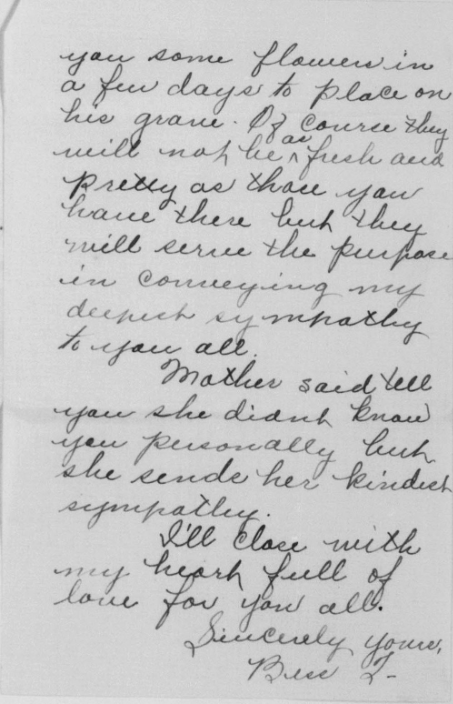 you some flowers in
a few days to place on
his grave. Of course they
will not be as fresh and
pretty as those you
have there but they
will serve the purpose
in conveying my
deepest sympathy
to you all.
Mother said tell
you she didnt know
you personally but
she sends her kindest
sympathy.
I'll close with
my heart full of
love for you all.
Sincerely yours,
Bess